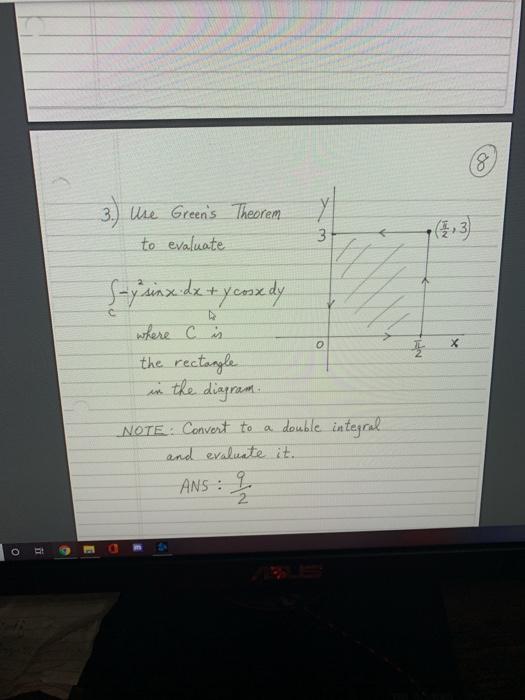 8
3.) Use Green's Theorem
to evaluate
∫_C -y² sinx·dx + y cosx dy
where C is
the rectangle
in the diagram.
y
3
(π/2, 3)
0
π/2
x
NOTE: Convert to a double integral
and evaluate it.
ANS : 9/2
ASUS